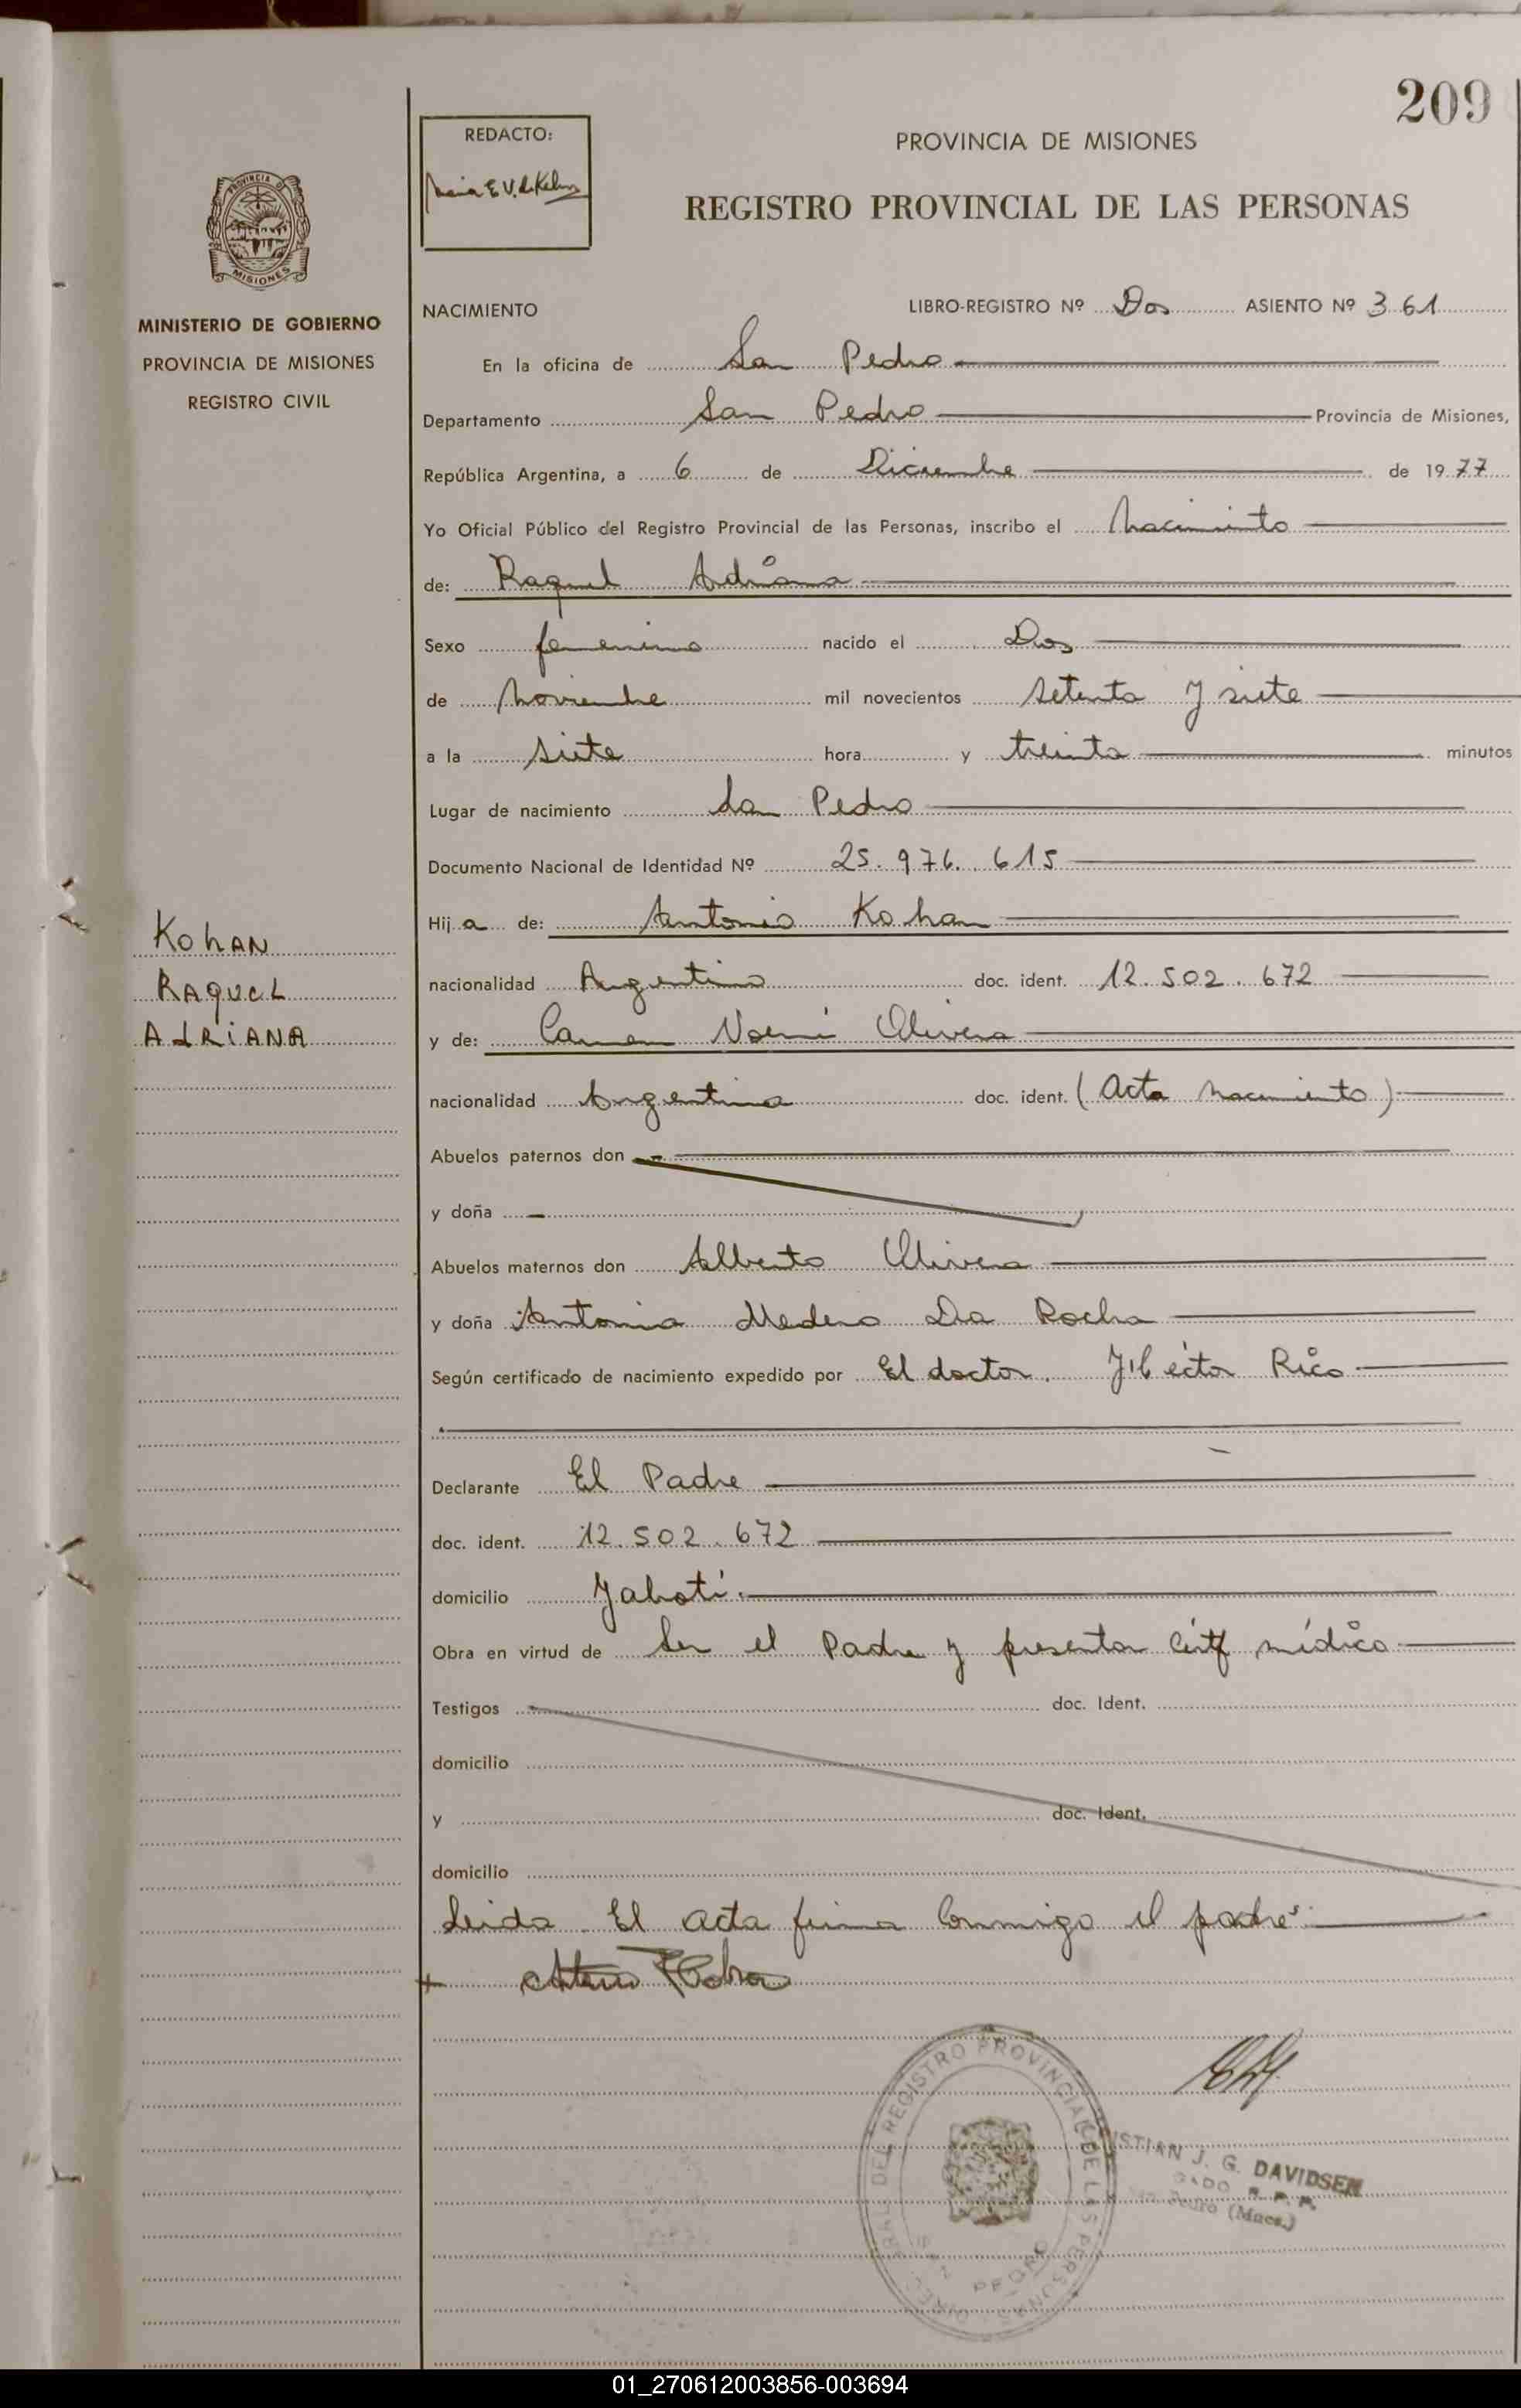 209
REDACTO:
PROVINCIA DE MISIONES
REGISTRO PROVINCIAL DE LAS PERSONAS
PROVINCIA DE
MISIONES
MINISTERIO DE GOBIERNO
PROVINCIA DE MISIONES
REGISTRO CIVIL
NACIMIENTO LIBRO-REGISTRO Nº Dos ASIENTO Nº 361
En la oficina de San Pedro
Departamento San Pedro Provincia de Misiones,
República Argentina, a 6 de Diciembre de 1977
Yo Oficial Público del Registro Provincial de las Personas, inscribo el nacimiento
de: Raquel Adriana
Sexo femenino nacido el Dos
de noviembre mil novecientos setenta y siete
a la siete hora y treinta minutos
Lugar de nacimiento San Pedro
Documento Nacional de Identidad Nº 25.976.615
Hija de: Antonio Kohan
nacionalidad Argentino doc. ident. 12.502.672
y de: Carmen Noemí Olivera
nacionalidad Argentina doc. ident. (Acta nacimiento)
KohAN
RAQUEL
ADRIANA
Abuelos paternos don
y doña
Abuelos maternos don Alberto Olivera
y doña Antonia Da Rocha
Según certificado de nacimiento expedido por El doctor Héctor Rico
Declarante El Padre
doc. ident. 12.502.672
domicilio Yabotí
Obra en virtud de Ser el Padre y presentar médico
Testigos doc. Ident.
domicilio
y doc. Ident.
domicilio
Leida El acta firma Conmigo el padre
REGISTRO PROVINCIAL DE LAS PERSONAS
SAN PEDRO
J. G. DAVIDSEN
01_270612003856-003694